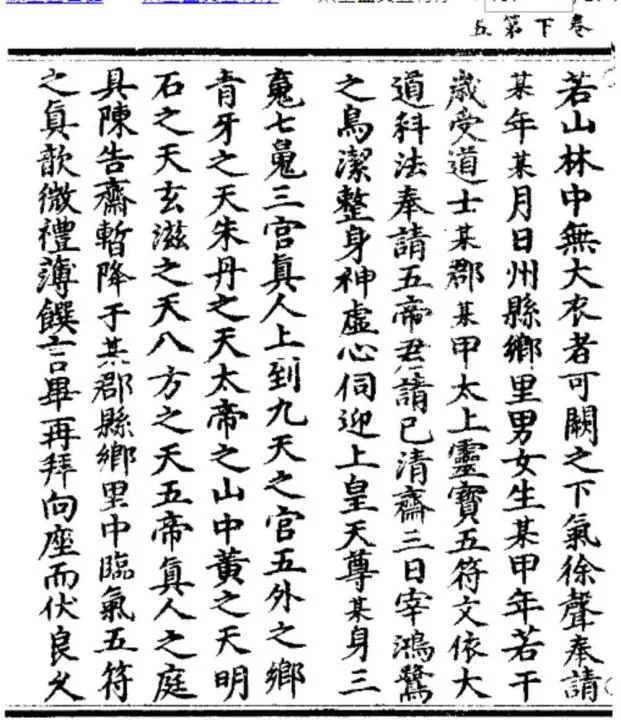 卷下第五
若山林中無大衣者可闕之下氣徐聲奉請
某年某月日州縣鄉里男女生某甲年若干
歲受道士某郡某甲太上靈寶五符文依大
道科法奉請五帝君請已清齋三日宰鴻鷺
之鳥潔整身神虛心伺迎上皇天尊某身三
魂七魄三宮眞人上到九天之宮五外之鄉
青牙之天朱丹之天太帝之山中黃之天明
石之天玄滋之天八方之天五帝眞人之庭
具陳告齋暫降于某郡縣鄉里中臨氣五符
之眞歆微禮薄饌言畢再拜向座而伏良久